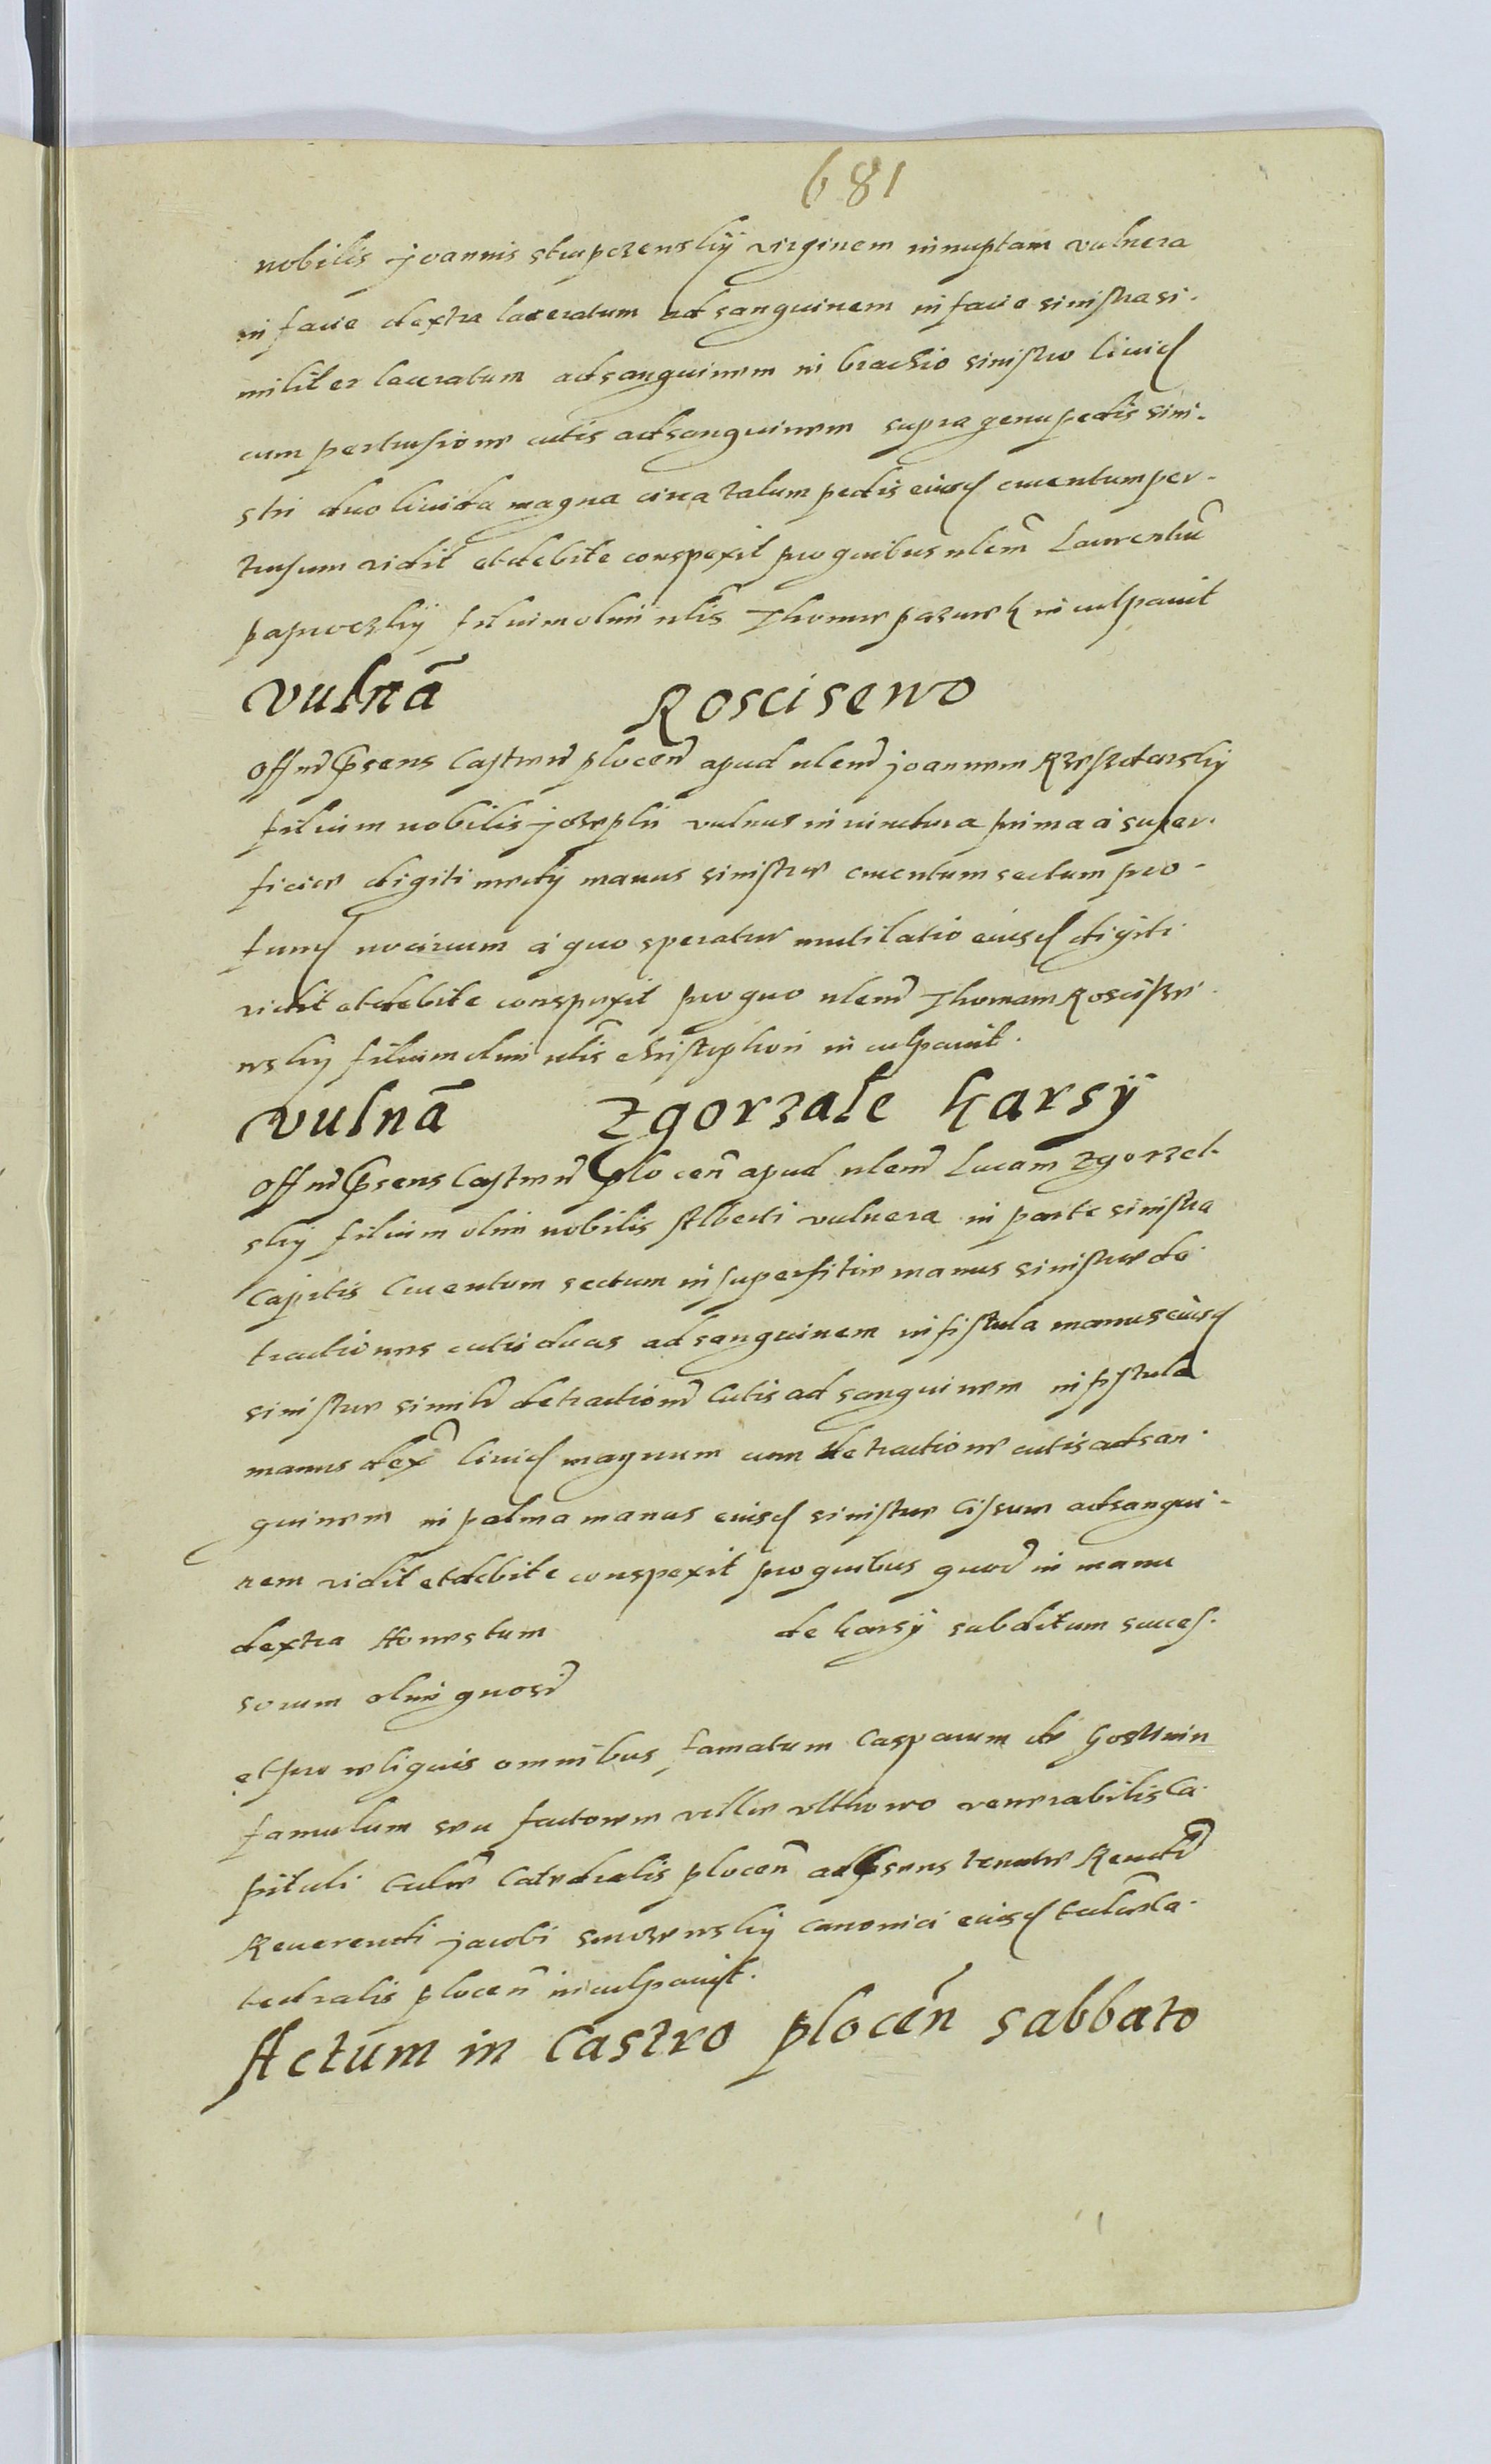 681
nobilis Joannis Strupczenskÿ virginem innuptam vulnera
in facie dextra laceratum ad sanguinem in facie sinistra si-
militer laceratum ad sanguinem in brachio sinistro livid
cum pertusione cutis ad sanguinem supra genu pedis sini-
stri duo livida magna circa talum pedis eiusd cruentum per-
tusum vidit et debite conspexit pro quibus nlem Laurentiu
paproczkÿ filium olim nlis Thome in culpavit
vulnã Roscisewo
Offm pñsens Castren plocen apud nlem Joannem Rzeszotarskÿ
filium nobilis Josephi vulnus in iunctura prima a super-
ficie digiti medÿ manus sinistre cruentum sectum pro-
fund nocivum a quo speratur mutilatio eiusd digiti
vidit et debite conspexit pro quo nlem Thomam Roscisze-
wskÿ filium olim nlis Christophori in culpavit.
vulnã Zgorzale karsÿ
Offm pñsens Castren plocen apud nlem Lucam Zgorzel-
skÿ filium olim nobilis Alberti vulnera in parte sinistra
Capitis Cruentum sectum in superfitie manus sinistre de-
tractiones cutis duas ad sanguinem in fistula manus eiusd
sinistre simile detractione Cutis ad sanguinem in fistula
manus dex livid magnum cum detractione cutis ad san-
guinem in palma manus eiusd sinistre Cissum ad sangui-
nem vidit et debite conspexit pro quibus quod in manu
dextra Honestum de karsÿ subditum succes-
sorum olim gnosd
et pro reliquis omnibus famatum Casparum de Gostinin
famulum seu factorem ville venerabilis Ca-
pituli Eccle Catedralis plocen ad psens tenute Rendi
Reverendi Jacobi canonici eiusd Eccle Ca-
tedralis plocen in culpavit.
Actum in Castro plocen sabbato